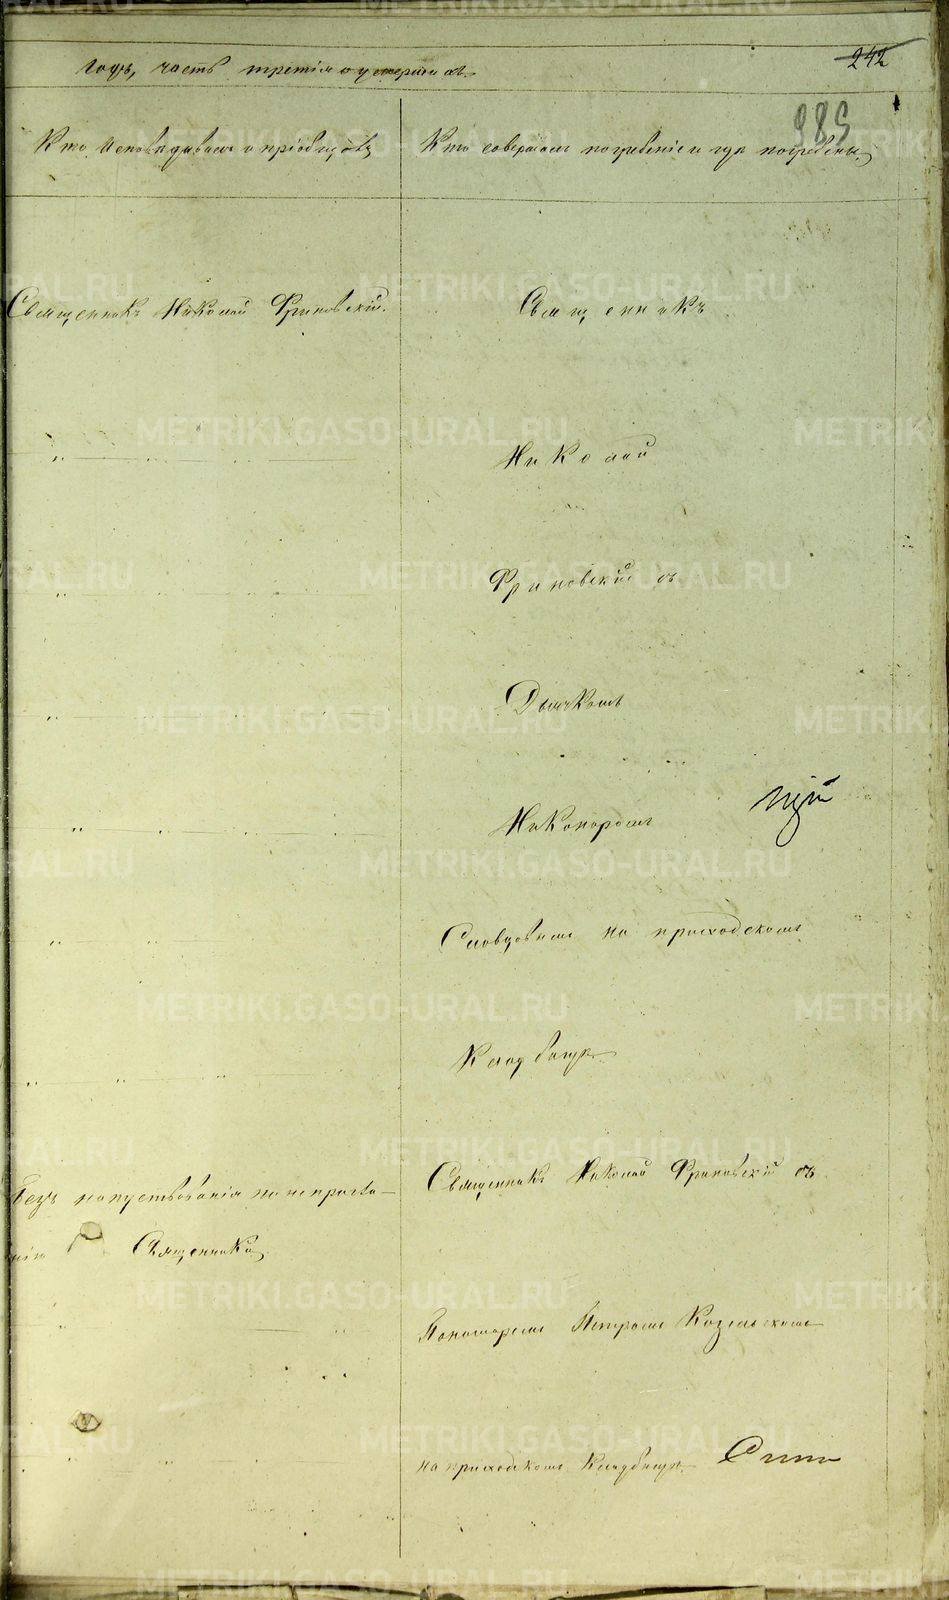 годъ, часть третія о умершихъ.
242
985
Кто исповѣдывалъ и пріобщалъ
Кто совершалъ погребеніе и гдѣ погребены.
Священникъ Николай Фриновскій.
Священникъ
Николай
Фриновскій съ
Дьячкомъ
Никаноромъ
Словцовымъ на приходскомъ
Кладбищѣ
Безъ напутствованія по непригла-
нію Священника
Священникъ Николай Фриновскій съ
Пономаремъ Петромъ Козельскимъ
на приходскомъ Кладбищѣ.
METRIKI.GASO-URAL.RU